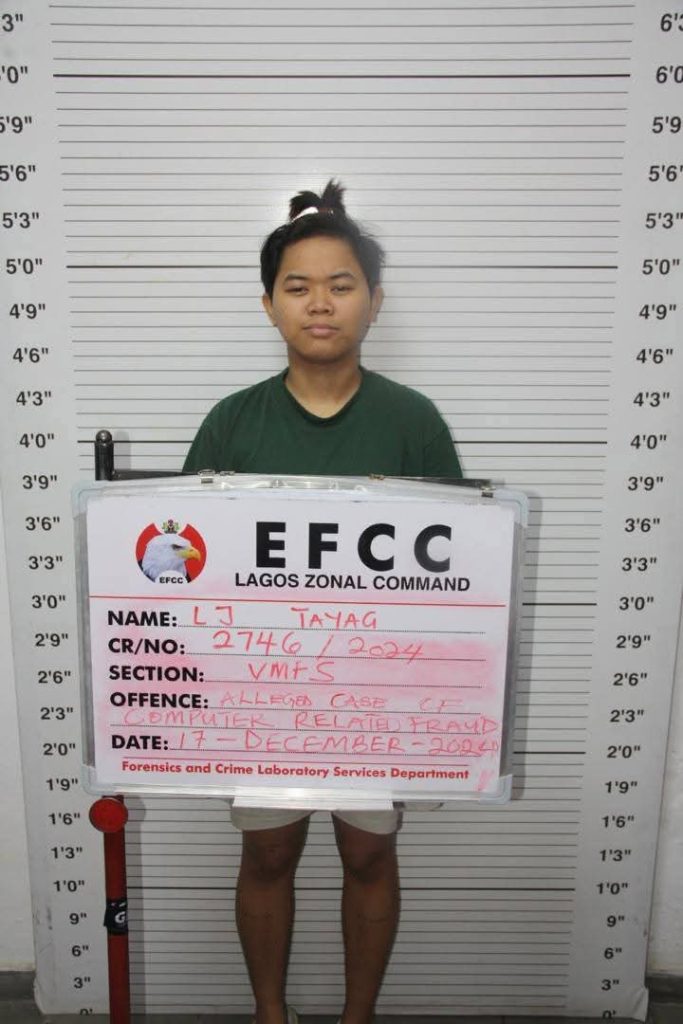 3"
'0"
5'9"
5'6"
5'3"
5'0"
4'9"
4'6"
4'3"
4'0"
3'9"
3'6"
3'3"
3'0"
2'9"
2'6"
2'3"
2'0"
1'9"
1'6"
1'3"
1'0"
9"
6"
3"
EFCC
EFCC
LAGOS ZONAL COMMAND
NAME: LJ TAYAG
CR/NO: 2746 / 2024
SECTION: VMFS
OFFENCE: ALLEGED CASE OF
COMPUTER RELATED FRAUD
DATE: 17 - DECEMBER - 2024
Forensics and Crime Laboratory Services Department
6'3
6'0
5'9
5'6"
5'3"
5'0"
4'9"
4'6"
4'3"
4'0"
3'9"
3'6"
3'3"
3'0"
2'9"
2'6"
2'3"
2'0"
1'9"
1'6"
1'3"
1'0"
9"
6"
3"